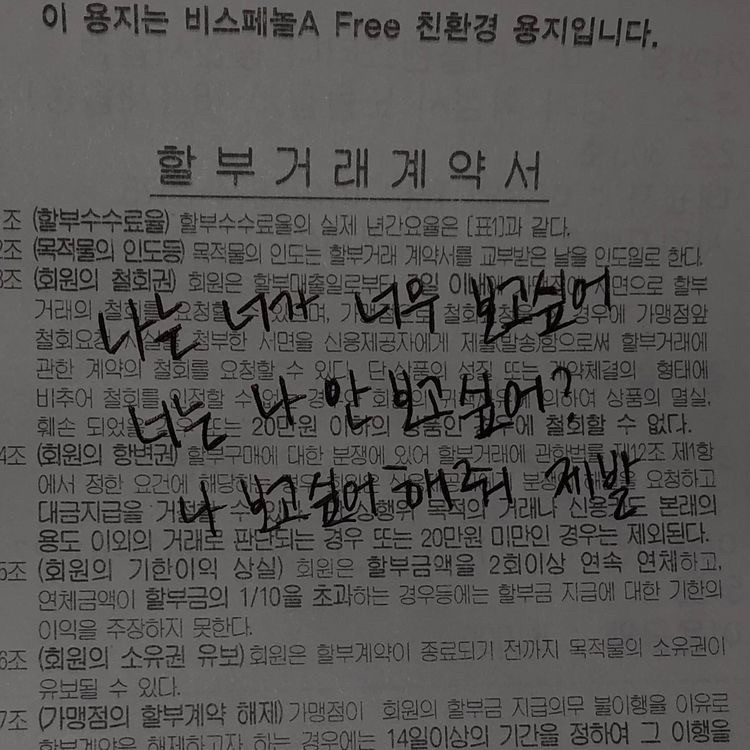 이 용지는 비스페놀A Free 친환경 용지입니다.
할부거래계약서
조 (할부수수료율) 할부수수료율의 실제 년간요율은 [표1]과 같다.
2조 (목적물의 인도등) 목적물의 인도는 할부거래 계약서를 교부받은 날을 인도일로 한다.
3조 (회원의 철회권) 회원은 할부매출일로부터 7일 이내에 서면으로 할부
나는 너가 너무 보고싶어
거래의 철회를 요청할 수 있으며, 철회 경우에 가맹점앞
철회요청 사실을 청부한 서면을 신용제공자에게 제출(발송)함으로써 할부거래에
관한 계약의 철회를 요청할 수 있다. 단 상품의 성질 또는 계약체결의 형태에
너는 나 안 보고싶어?
비추어 철회를 인정할 수 없는 경우와 회원의 의하여 상품의 멸실,
훼손 되었을 또는 20만원 이하의 상품인 경우에 철회할 수 없다.
4조 (회원의 항변권) 할부구매에 대한 분쟁에 있어 할부거래에 관한법률 제12조 제1항
에서 정한 요건에 해당하는 경우 분쟁 요청하고
나 보고싶어 해줘 제발
대금지급을 거절할 수 있다. 상행위 목적의 거래나 신용카드 본래의
용도 이외의 거래로 판단되는 경우 또는 20만원 미만인 경우는 제외된다.
5조 (회원의 기한이익 상실) 회원은 할부금액을 2회이상 연속 연체하고,
연체금액이 할부금의 1/10을 초과하는 경우등에는 할부금 지급에 대한 기한의
이익을 주장하지 못한다.
6조 (회원의 소유권 유보) 회원은 할부계약이 종료되기 전까지 목적물의 소유권이
유보될 수 있다.
7조 (가맹점의 할부계약 해제) 가맹점이 회원의 할부금 지급의무 불이행을 이유로
할부계약을 해제하고자 하는 경우에는 14일이상의 기간을 정하여 그 이행을